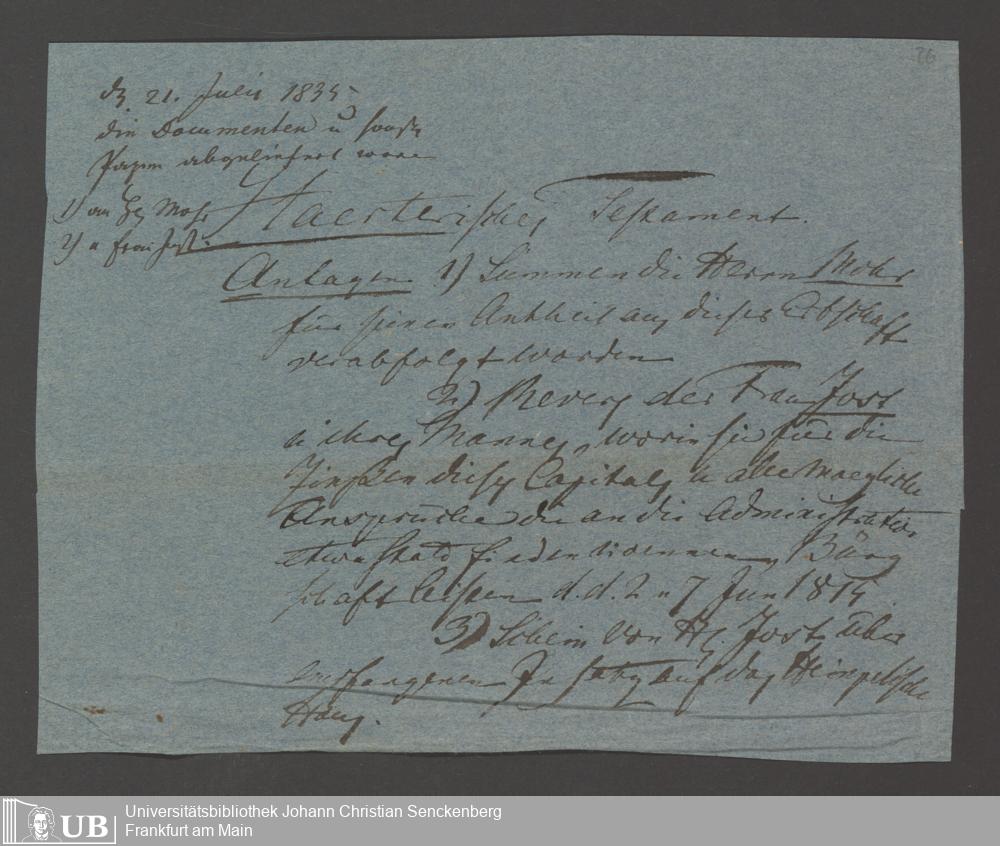 26
d. 21. Julii 1835
die Documenten u
abgeliefert
1) an H. Mohr
2) u Frau Jost.
Kaesterisches Testament.
Anlagen 1) Summen die Herrn Mohr
für seinen Antheil aus dieser Erbschaft
verabfolgt worden
2) Revers der Frau Jost
u ihres Mannes, worin sie für die
Zinßen dieses Capitals u alle moegliche
Ansprüche die an die Administration
etwa statt finden koennen, Bürg
schaft leisten d. d. 2 u 7 Jun 1814
3) Schein von H. Jost über
empfangenen auf das Heimpelsche
Haus.
UB
Universitätsbibliothek Johann Christian Senckenberg
Frankfurt am Main